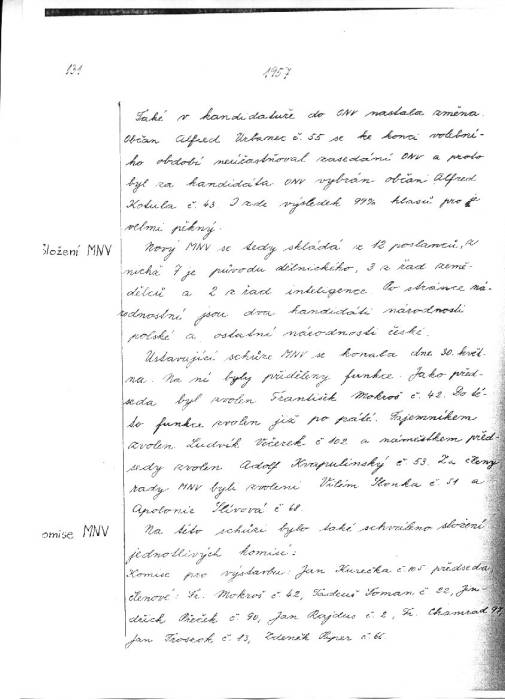 131
1957
Také v kandidatuře do ONV nastala změna.
Občan Alfred Urbanec č. 55 se ke konci volební-
ho období neúčastňoval zasedání ONV a proto
byl za kandidáta ONV vybrán občan Alfred
Kotula č. 43 I zde výsledek 99% hlasů pro je
velmi pěkný.
složení MNV
Nový MNV se tedy skládá z 12 poslanců, z
nichž 7 je původu dělnického, 3 z řad země-
dělců a 2 z řad inteligence Po stránce ná-
rodnostní jsou dva kandidáti národnosti
polské a ostatní národnosti české.
Ustavující schůze MNV se konala dne 30. květ-
na. Na ní byly přiděleny funkce. Jako před-
seda byl zvolen František Mokroš č. 42. Do té-
to funkce zvolen již po páté. Tajemníkem
zvolen Ludvík Věčerek č 102 a náměstkem před-
sedy zvolen Adolf Kvapulinský č 53. Za členy
rady MNV byli zvoleni Vilém Stonka č 51 a
Apolonie Slívová č 68.
omise MNV
Na této schůzi bylo také schváleno složení
jednotlivých komisí:
Komise pro výstavbu: Jan Kurečka č 105 předseda,
členové: Fr. Mokroš č 42, Tadeuš Toman č 22, Jin-
dřich Příček č 90, Jan Rajdus č 2, Fr. Chamrád 97,
Jan Troscok č 13, Zdeněk Pyper č 66.